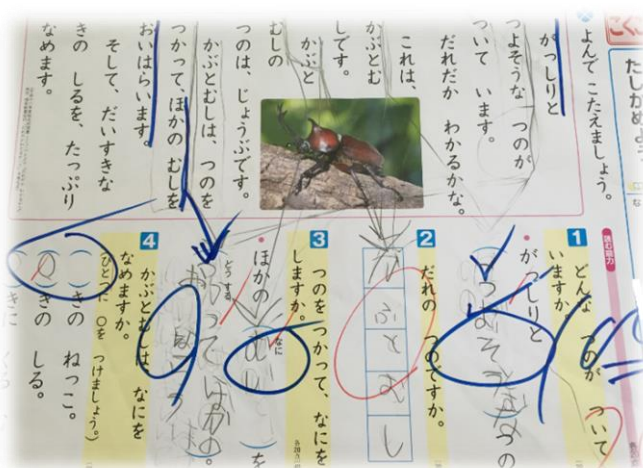 こくご
たしかめよう
よんで こたえましょう。
がっしりと
つよそうな つのが
ついて います。
だれだか わかるかな。
これは、
かぶとむ
しです。
かぶと
むしの
つのは、じょうぶです。
かぶとむしは、つのを
つかって、ほかの むしを
おいはらいます。
そして、だいすきな
きの しるを、たっぷり
なめます。
読む能力
1
どんな つのが ついて
いますか。
がっしりと
つよそうな
つの
2
だれの つのですか。
かぶとむし
3
つのを つかって、なにを
しますか。
ほかの
なに
むし
を
どうする
4
かぶとむしは なにを
なめますか。
(ひとつに ○を つけましょう。)
きの ねっこ。
きの しる。